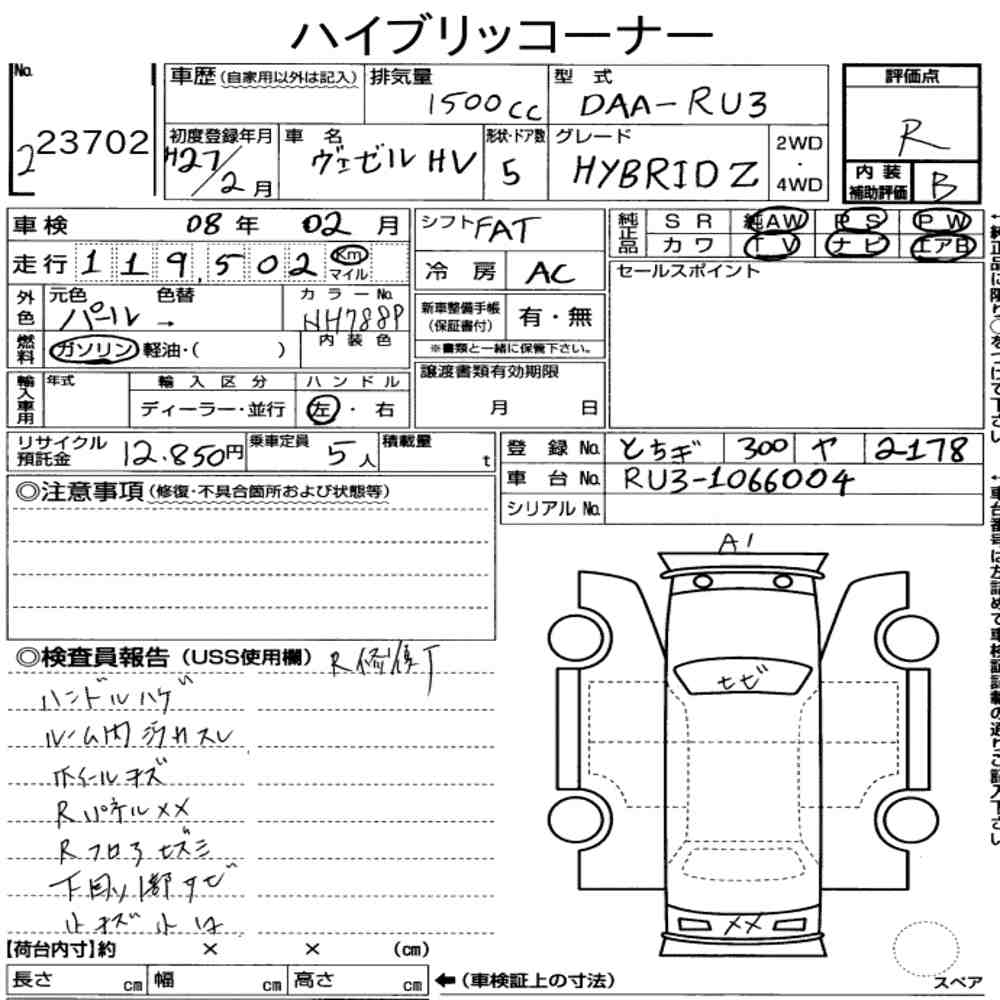 ハイブリッコーナー
No. 223702
車歴(自家用以外は記入) 排気量 1500cc 型式 DAA-RU3 評価点 R
初度登録年月 H27/2月 車名 ヴェゼルHV 形状・ドア数 5 グレード HYBRID Z 2WD・4WD 内装補助評価 B
車検 08年 02月 シフト FAT 純正品 SR 純AW PS PW
走行 119,502 Km マイル 冷房 AC カワ TV ナビ エアB
セールスポイント
外色 元色 パール 色替 → カラーNo. NH788P
新車整備手帳(保証書付) 有・無
燃料 ガソリン 軽油・( ) 内装色
※書類と一緒に保管下さい。
輸入車用 年式 輸入区分 ハンドル
ディーラー・並行 左・右
譲渡書類有効期限
月 日
リサイクル預託金 12.850円 乗車定員 5人 積載量 t
登録No. とちぎ 300 ヤ 2178
車台No. RU3-1066004
シリアルNo.
◎注意事項(修復・不具合箇所および状態等)
A1
◎検査員報告(USS使用欄) R修復
ハンドルハゲ
ルーム内
ホイールキズ
Rパネル××
Rフロア
下回り
キズ
トビ
××
【荷台内寸】約 × × (cm)
長さ cm 幅 cm 高さ cm ←(車検証上の寸法)
スペア
←純正品に限り○をつけて下さい
←車台番号は左詰めで車検証記載の通りご記入下さい